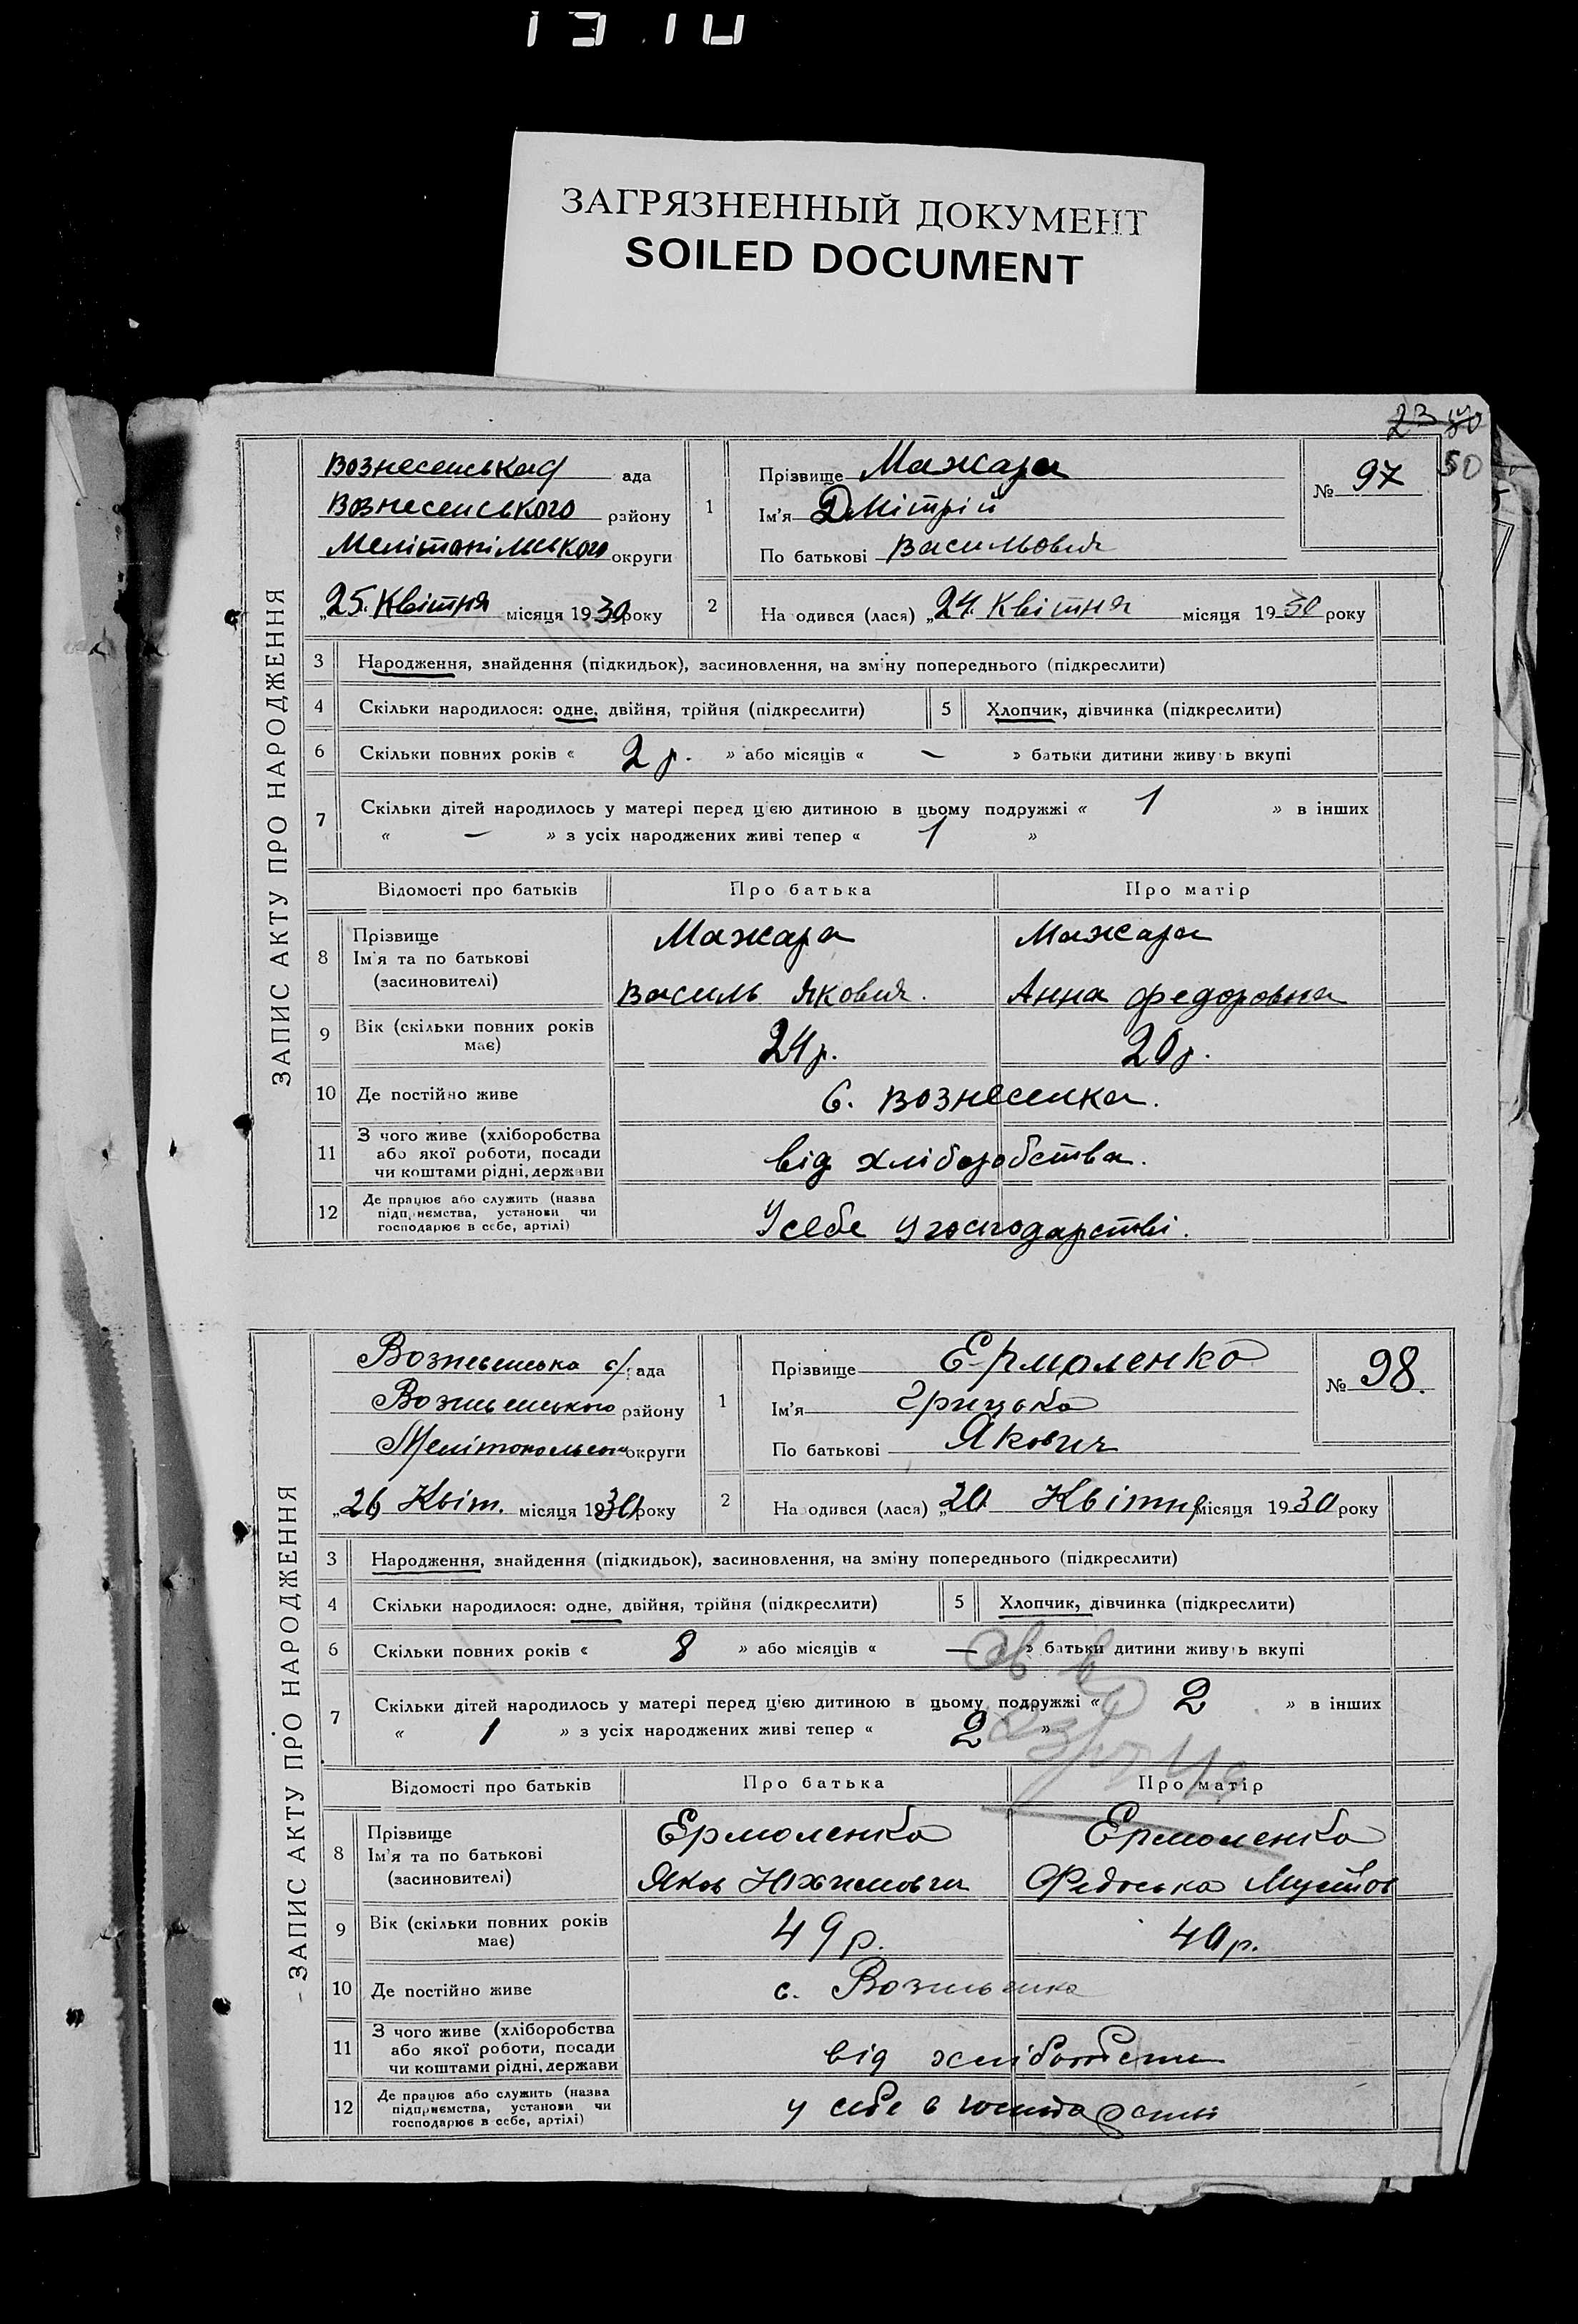 ЗАГРЯЗНЕННЫЙ ДОКУМЕНТ
SOILED DOCUMENT
23 50
ЗАПИС АКТУ ПРО НАРОДЖЕННЯ
Вознесенська с/ ада
Вознесенського району
Мелітопільського округи
„25. Квітня місяця 1930 року
1
Прізвище Мажара
Ім'я Дмітрій
По батькові Васильович
№ 97
2
На одився (лася) „24. Квітня місяця 1930 року
3 Народження, знайдення (підкидьок), засиновлення, на зміну попереднього (підкреслити)
4 Скільки народилося: одне, двійня, трійня (підкреслити) 5 Хлопчик, дівчинка (підкреслити)
6 Скільки повних років « 2 р. » або місяців « — » батьки дитини живуть вкупі
7 Скільки дітей народилось у матері перед цією дитиною в цьому подружжі « 1 » в інших
« — » з усіх народжених живі тепер « 1 »
Відомості про батьків Про батька Про матір
8 Прізвище Ім'я та по батькові (засиновителі)
Мажара Мажара
Василь Якович. Анна Федоровна
9 Вік (скільки повних років має) 24 р. 20 р.
10 Де постійно живе С. Вознесенка.
11 З чого живе (хліборобства або якої роботи, посади чи коштами рідні, держави від хліборобства.
12 Де працює або служить (назва підприємства, установи чи господарює в себе, артілі) У себе у господарстві.
ЗАПИС АКТУ ПРО НАРОДЖЕННЯ
Вознесенська с/ ада
Вознесенського району
Мелітопольськ округи
„26 Квіт. місяця 1930 року
1
Прізвище Ермоленко
Ім'я Грицько
По батькові Якович
№ 98.
2
На одився (лася) „20. Квітня місяця 1930 року
3 Народження, знайдення (підкидьок), засиновлення, на зміну попереднього (підкреслити)
4 Скільки народилося: одне, двійня, трійня (підкреслити) 5 Хлопчик, дівчинка (підкреслити)
6 Скільки повних років « 8 » або місяців « — » батьки дитини живуть вкупі
7 Скільки дітей народилось у матері перед цією дитиною в цьому подружжі « 2 » в інших
« 1 » з усіх народжених живі тепер « 2 »
Відомості про батьків Про батька Про матір
8 Прізвище Ім'я та по батькові (засиновителі)
Ермоленко Ермоленко
Яков Федоська
9 Вік (скільки повних років має) 49 р. 40 р.
10 Де постійно живе с. Вознесенка
11 З чого живе (хліборобства або якої роботи, посади чи коштами рідні, держави від хліборобства
12 Де працює або служить (назва підприємства, установи чи господарює в себе, артілі) у себе в господарстві